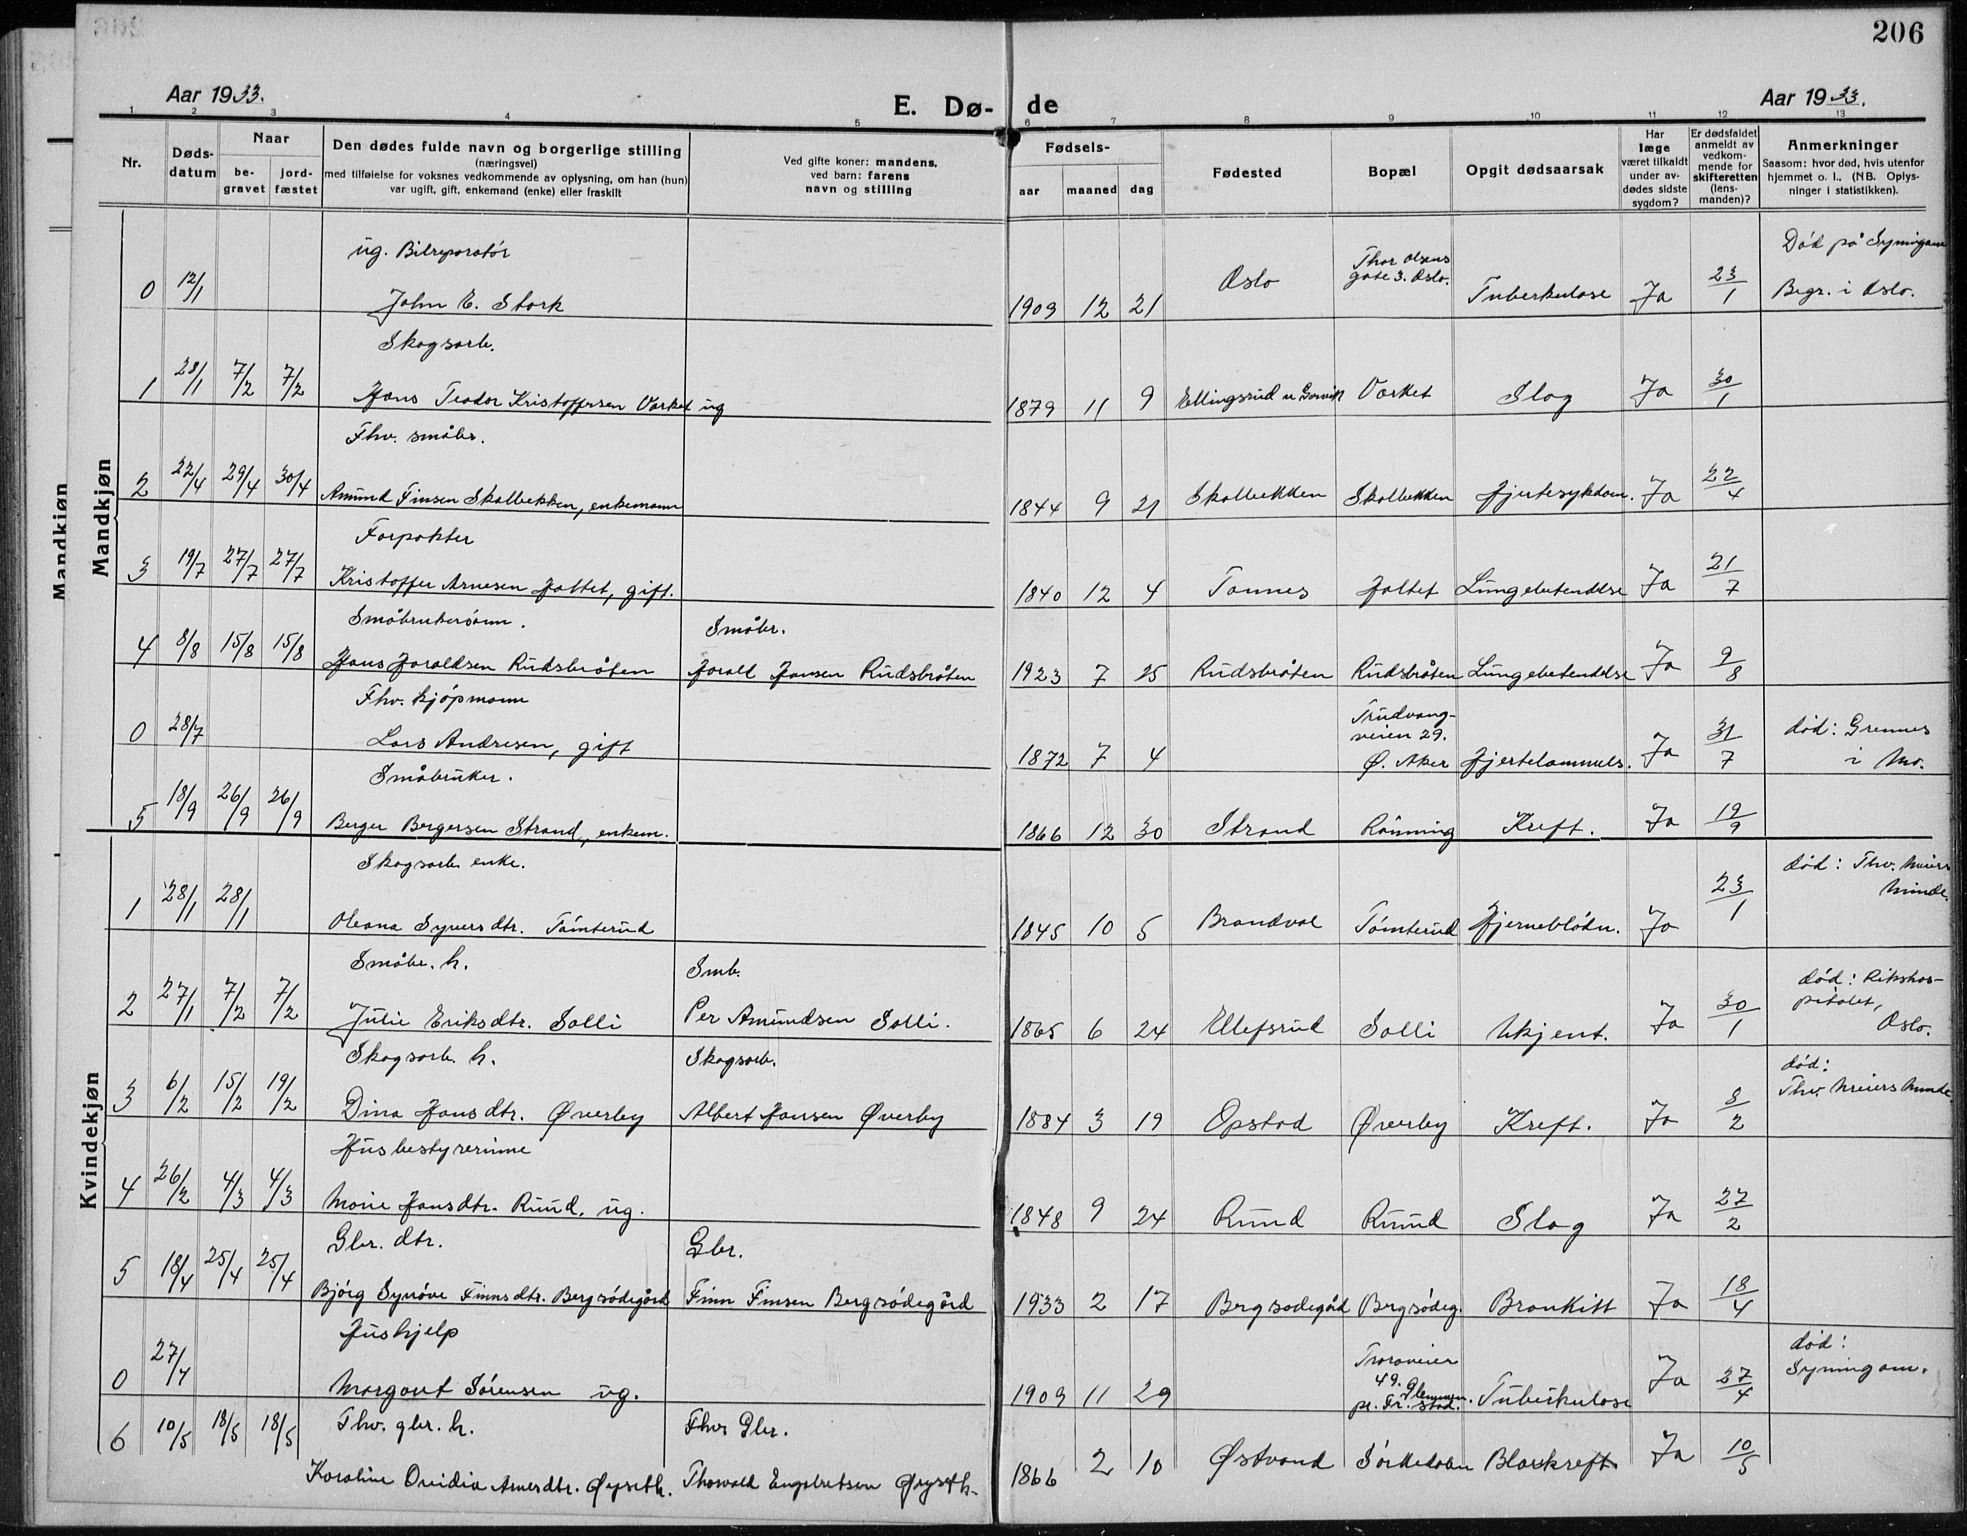 206
Aar 1933.
E. Dø- de
Aar 1933.
1 2 3 4 5 6 7 8 9 10 11 12 13
Nr.
Døds-
datum
Naar
be-
gravet
jord-
fæstet
Den dødes fulde navn og borgerlige stilling
(næringsvei)
med tilføielse for voksnes vedkommende av oplysning, om han (hun)
var ugift, gift, enkemand (enke) eller fraskilt
Ved gifte koner: mandens,
ved barn: farens
navn og stilling
Fødsels-
aar maaned dag
Fødested
Bopæl
Opgit dødsaarsak
Har
læge
været tilkaldt
under av-
dødes sidste
sygdom?
Er dødsfaldet
anmeldt av
vedkom-
mende for
skifteretten
(lens-
manden)?
Anmerkninger
Saasom: hvor død, hvis utenfor
hjemmet o. l., (NB. Oplys-
ninger i statistikken).
Mandkjøn
Mandkjøn
ug. Bilreparatør
Thor Olsens
gate 3. Oslo.
Død på
0 12/1 John E. Stork 1909 12 21 Oslo Tuberkulose Ja 23/1 Begr. i Oslo.
Skogsarb.
1 28/1 7/2 7/2 Hans Teodor Kristoffersen Varket ug 1879 11 9 Ellingsrud Varket Slag Ja 30/1
Fhv. småbr.
2 22/4 29/4 30/4 Amund Finsen Skolbekken, enkemann 1844 9 21 Skolbekken Skolbekken Hjertesykdom. Ja 22/4
Forpakter
3 19/7 27/7 27/7 Kristoffer Arnesen Holtet, gift. 1840 12 4 Tannes Holtet Lungebetendelse Ja 21/7
Småbrukersønn. Småbr.
4 8/8 15/8 15/8 Hans Haraldsen Rudsbråten Harald Hansen Rudsbråten 1923 7 25 Rudsbråten Rudsbråten Lungebetendelse Ja 9/8
Fhv. kjøpmann
Trudvang-
veien 29.
død: Grennes
0 28/7 Lars Andresen, gift 1872 7 4 Ø. Aker Hjertelammels. Ja 31/7 i Mo.
Småbruker.
5 18/9 26/9 26/9 Berger Bergersen Strand, enkem. 1866 12 30 Strand Rønning Kreft. Ja 19/9
Kvindekjøn
Skogsarb. enke.
død: Thv. Meiers
Minde.
1 28/1 28/1 Oleana Syversdtr. Tømterud 1845 10 5 Brandval Tømterud Hjerneblødn. Ja 23/1
Småbr. h. Smb.
død: Rikshos-
pitalet,
Oslo.
2 27/1 7/2 7/2 Julie Eriksdtr. Solli Per Amundsen Solli. 1865 6 24 Ellefsrud Solli Ukjent. Ja 30/1
Skogsarb. h. Skogsarb.
død:
Thv. Meiers Minde
3 6/2 15/2 19/2 Dina Hansdtr. Øverby Albert Hansen Øverby 1884 3 19 Opstad Øverby Kreft. Ja 8/2
Husbestyrerinne
4 26/2 4/3 4/3 Marie Hansdtr. Ruud, ug. 1848 9 24 Ruud Ruud Slag Ja 27/2
Gbr. dtr. Gbr.
5 18/4 25/4 25/4 Bjørg Synøve Finnsdtr. Bergsødegård Finn Finsen Bergsødegård 1933 2 17 Bergsødegård Bergsødeg. Bronkitt Ja 18/4
Hushjelp
død:
0 27/4 Margout Sørensen ug. 1909 11 29 49. Glemmen pr. Fr.stad. Tuberkulose Ja 27/4
Fhv. gbr. h. Fhv. Gbr.
6 10/5 18/5 18/5 Karoline Ovidia Arnesdtr. Øyseth. Thorvald Engebretsen Øyseth. 1866 2 10 Østvand Sørkedalen Blærkreft. Ja 10/5